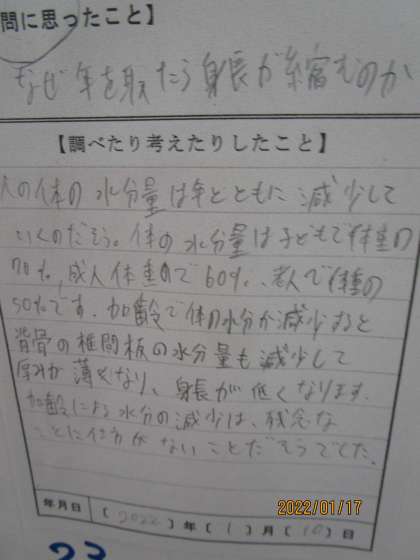 問に思ったこと】
なぜ年を取たら身長が縮むのか
【調べたり考えたりしたこと】
人の体の水分量は年とともに減少して
いくのだそう。体の水分量は子どもで体重の
70%,成人体重ので60%、老人で体重の
50%です。加齢で体の水分が減少すると
背骨の椎間板の水分量も減少して
厚みが薄くなり、身長が低くなります。
加齢による水分の減少は、残念な
ことに仕方がないことだそうでした。
年月日 〔2022〕年〔1〕月〔10〕日
2022/01/17
23